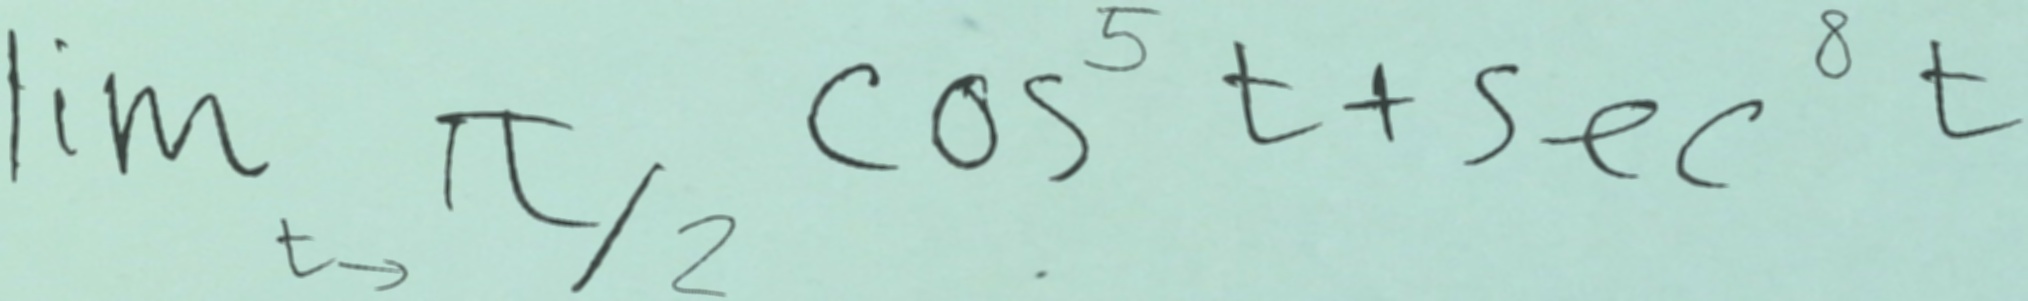 \lim_{t \to \pi/2} \cos^5 t + \sec^8 t